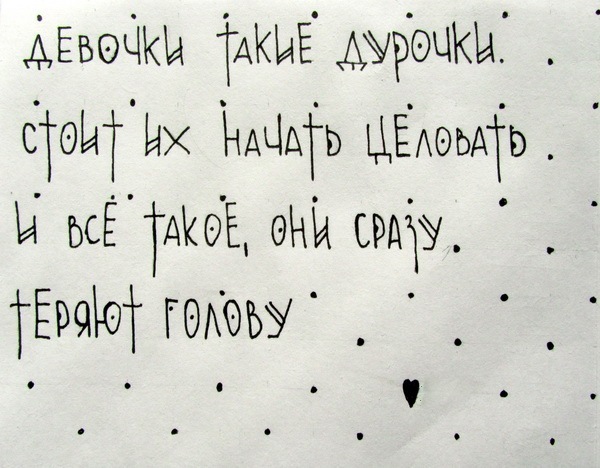 ДЕВОЧКИ ТАКИЕ ДУРОЧКИ.
СТОИТ ИХ НАЧАТЬ ЦЕЛОВАТЬ
И ВСЁ ТАКОЕ, ОНИ СРАЗУ
ТЕРЯЮТ ГОЛОВУ